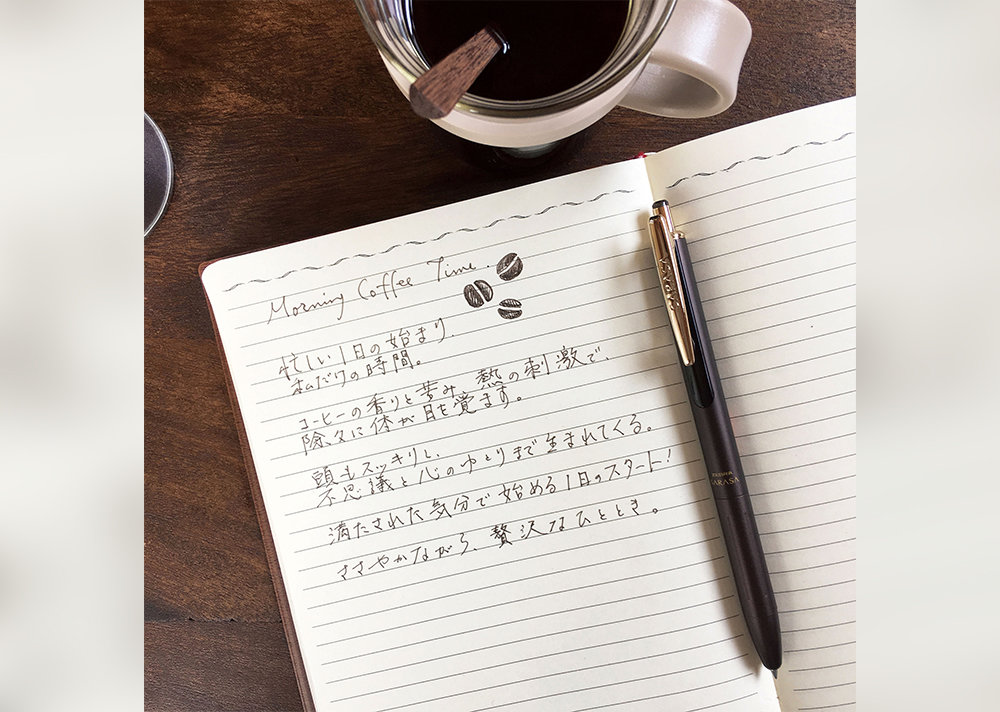 Morning Coffee Time.
忙しい1日の始まり、
私だけの時間。
コーヒーの香りと苦み、熱の刺激で、
除々に体が目を覚ます。
頭もスッキリし、
不思議と心のゆとりまで生まれてくる。
満たされた気分で始める1日のスタート!
ささやかながら、贅沢なひととき。
SARASA